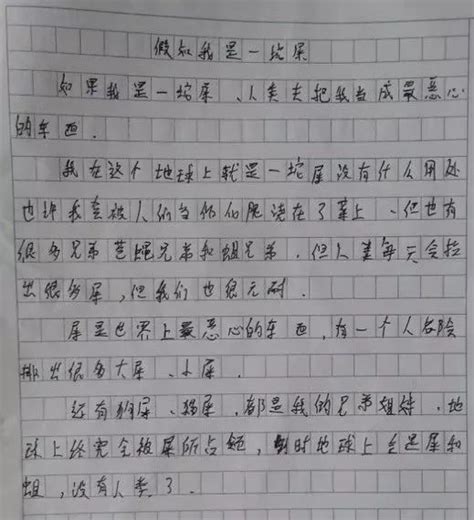 假如我是一坨屎
如果我是一坨屎、人类会把我当成最恶心
的车西.
我在这个地球上就是一坨屎没有什么用处
也许我会被人们当作肥浇在了菜上、但也有
很多兄弟苍蝇兄弟和蛆兄弟.但人类每天会拉
出很多屎,但我们也很无耐.
屎是世界上最恶心的车西,有一个人会
排出很多大屎、小屎.
还有狗屎、猫屎.都是我的兄弟姐妹.地
球上终究会被屎所占领,到时地球上全是屎和
蛆,没有人类了.